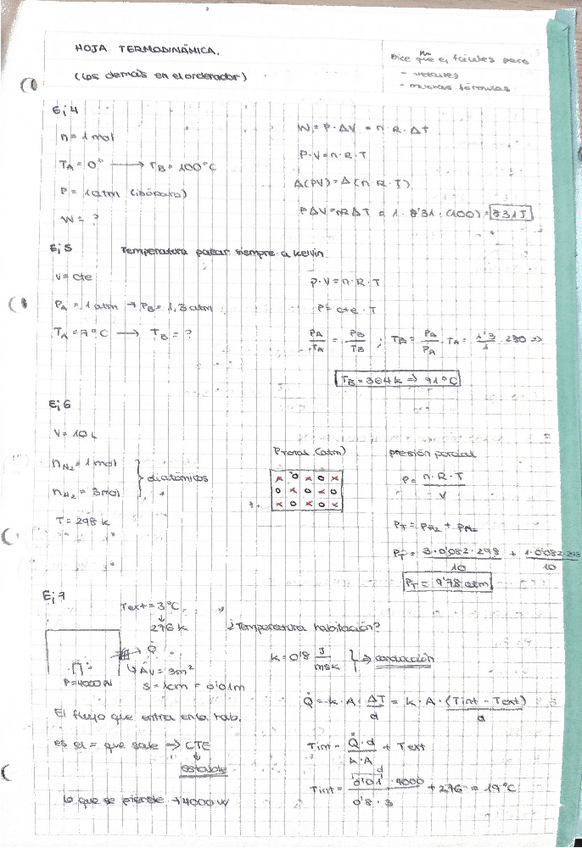 HOJA TERMODINÁMICA.
(Los demás en el ordenador)
Dice que ej fáciles para
- vetustes
- muchas fórmulas
Ej 4
n = 1 mol
TA = 0° → TB = 100°C
P = 1 atm (isóbaro)
W = ?
W = P · ΔV = n · R · ΔT
P · V = n · R · T
Δ(PV) = Δ(n · R · T)
PΔV = nRΔT = 1 · 8'31 · (100) = 831 J
Ej 5 Temperatura pasar siempre a kelvin
V = cte
PA = 1 atm → PB = 1,3 atm
TA = 7°C → TB = ?
P · V = n · R · T
P = cte · T
PA/TA = PB/TB ; TB = PA/PA · TA = 1'3/1 · 280 =>
TB = 364 k => 91°C
Ej 6
V = 10 L
nN2 = 1 mol
nH2 = 3 mol
} diatómicos
T = 298 k
Ptotal (atm)
x o x o x
o x o x o
x o x o x
presión parcial
P = n · R · T / V
PT = PH2 + PN2
PT = 3 · 0'082 · 298 / 10 + 1 · 0'082 · 298 / 10
PT = 9'78 atm
Ej 7
Text = 3°C
276 k
Q̇
P = 4000 W
Av = 3m²
S = 1cm = 0'01m
¿Temperatura habitación?
k = 0'8 J/msk } => conducción
Q̇ = k · A · ΔT/d = k · A · (Tint - Text)/d
El flujo que entra en la hab.
es el = que sale => CTE
estable
Lo que se pierde → 4000 W
Tint = Q̇ · d / k · A + Text
d
Tint = 0'01 · 4000 / 0'8 · 3 + 276 = 19°C